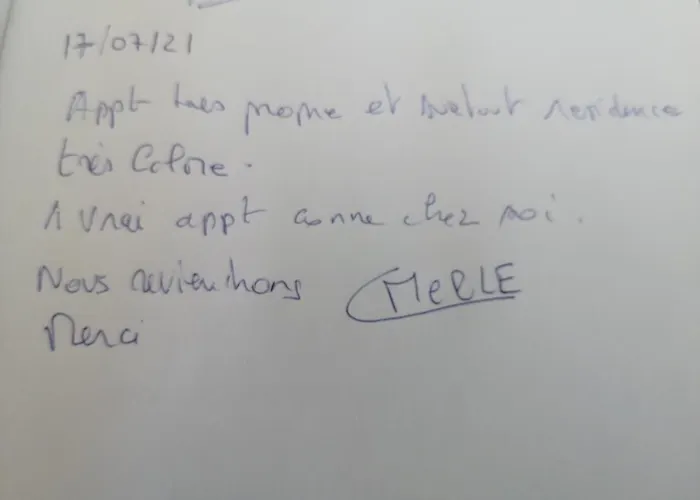 17/07/21
Appt très propre et surtout résidence
très Calme.
1 vrai appt comme chez moi.
Nous reviendrons MERLE
Merci